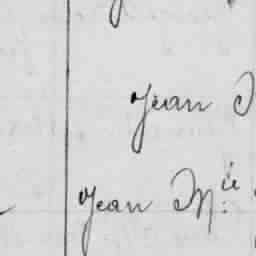 Jean
Jean M.ie